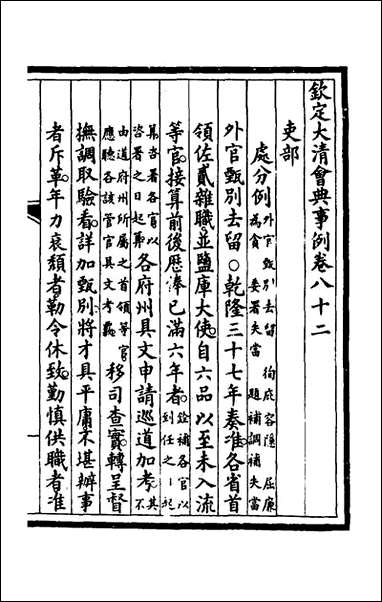 欽定大清會典事例卷八十二
吏部
處分例 外官甄別去留 徇庇容隱 屈廉
為貪 委署失當 題補調補失當
外官甄別去留○乾隆三十七年奏准各省首
領佐貳雜職並鹽庫大使自六品以至未入流
等官接算前後歷俸已滿六年者銓補各官以
到任之日起
算咨署各官以
咨署之日起算各府州具文申請巡道加考其
不
由道府州所屬之首領等官
應聽各該管官具文考覈移司查實轉呈督
撫調取驗看詳加甄別將才具平庸不堪辦事
者斥革年力衰頹者勒令休致勤慎供職者准